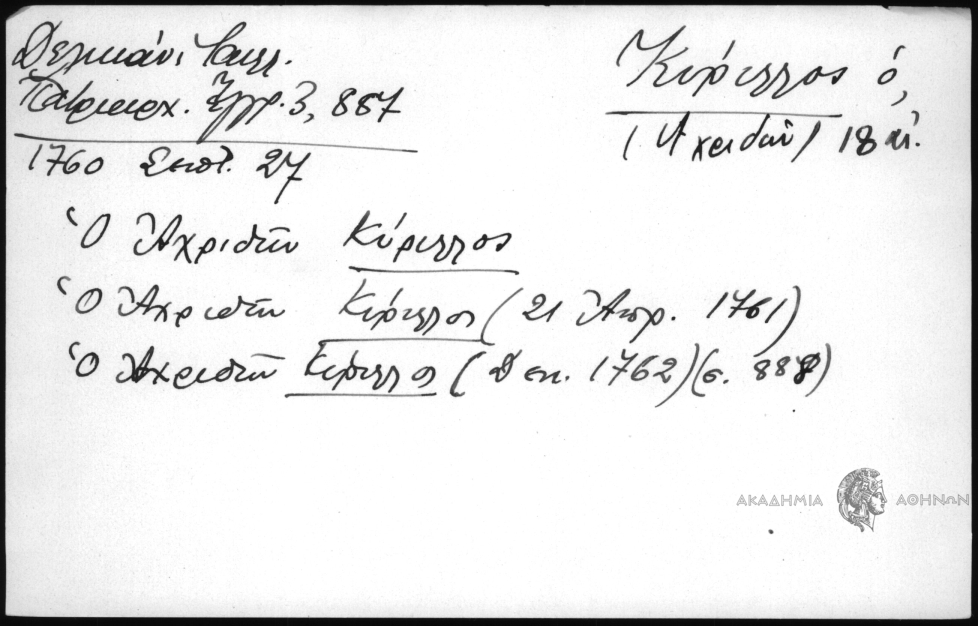 Δελικάνι Καλλ.
Πατριαρχ. Ἔγγρ. 3, 887
Κύριλλος ὁ,
(Ἀχριδῶν) 18 αἰ.
1760 Σεπτ. 27
Ὁ Ἀχριδῶν Κύριλλος
Ὁ Ἀχριδῶν Κύριλλος (21 Ἀπρ. 1761)
Ὁ Ἀχριδῶν Κύριλλος (Δεκ. 1762) (σ. 888)
ΑΚΑΔΗΜΙΑ ΑΘΗΝΩΝ